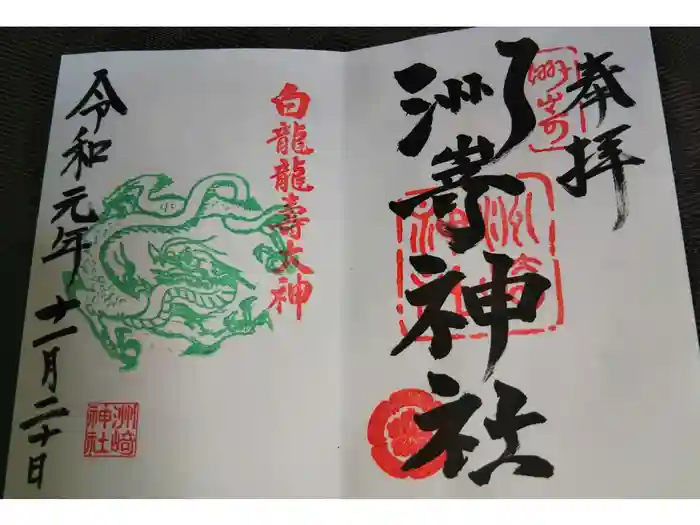 奉拝
洲嵜神社
洲崎神社
白龍龍壽大神
令和元年十一月二十日
洲崎神社